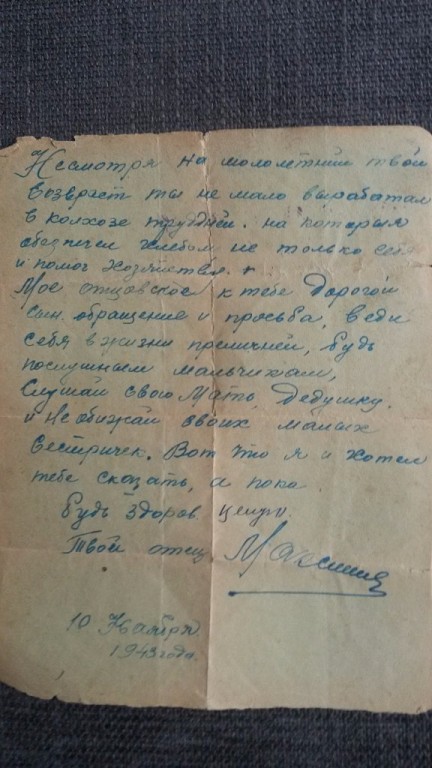 Несмотря на молометний твой
возвраст ты не мало выработал
в колхозе трудней. на которых
обеспечил хлебом не только себя
и помог хозяйства.
Мое отцовское к тебе дорогой
сын. обращение и просьба, веди
себя в жизни приличней, будь
послушным мальчиком,
Слушай свою Мать, Дедушку.
и Не обижай своих малых
Сестричек. Вот что я и хотел
тебе сказать, а пока
будь здоров целую.
Твой отец
10 Ноября
1943 года.